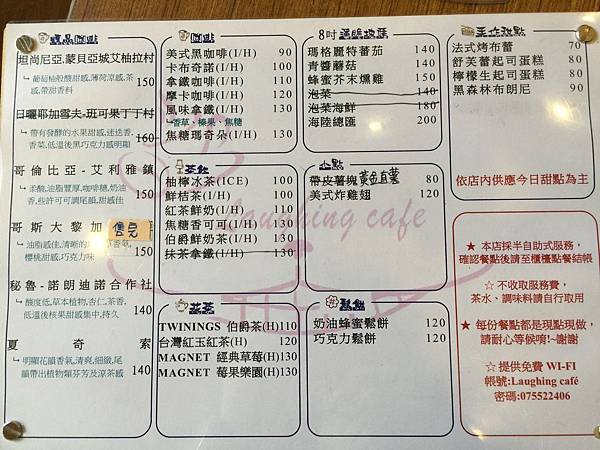 單品咖啡
坦尚尼亞.蒙貝亞城艾柚拉村
葡萄柚般酸甜感,薄荷涼感,茶
感,帶甜香料 150
日曬耶加雪夫-班可果丁丁村
帶有發酵的水果甜感,迷迭香,
香菜,低溫後黑巧克力甜感明顯 160
哥倫比亞-艾利雅鎮
柔酸,油脂豐厚,咖啡糖,奶油
香,些許可可調尾韻,甜感佳 150
哥斯大黎加 售完
油脂感佳,清晰的 香氣,
櫻桃甜感,巧克力味 150
秘魯-諾朗迪諾合作社
酸度低,草本植物,杏仁,茶香,
低溫後核果甜感集中,持久 140
夏奇索
明顯花韻香氣,清爽,細緻,尾
韻帶出植物類芬芳及涼茶感 140
咖啡
美式黑咖啡(I/H) 90
卡布奇諾(I/H) 100
拿鐵咖啡(I/H) 110
摩卡咖啡(I/H) 120
風味拿鐵(I/H) 130
香草、榛果、焦糖
焦糖瑪奇朵(I/H) 130
茶飲
柚檸冰茶(ICE) 100
鮮桔茶(I/H) 100
紅茶鮮奶(I/H) 100
焦糖香可可(I/H) 120
伯爵鮮奶茶(I/H) 120
抹茶拿鐵(I/H) 130
花茶
TWININGS 伯爵茶(H)110
台灣紅玉紅茶(H) 120
MAGNET 經典草莓(H)130
MAGNET 莓果樂園(H)130
8吋
瑪格麗特蕃茄 140
青醬蘑菇 140
蜂蜜芥末燻雞 150
泡菜 140
泡菜海鮮 180
海陸總匯 200
小點
帶皮薯塊 黃金薯薯 80
美式炸雞翅 120
鬆餅
奶油蜂蜜鬆餅 120
巧克力鬆餅 120
手作甜點
法式烤布蕾 70
舒芙蕾起司蛋糕 80
檸檬生起司蛋糕 80
黑森林布朗尼 90
依店內供應今日甜點為主
laughing cafe
★ 本店採半自助式服務,
確認餐點後請至櫃檯點餐結帳
☆ 不收取服務費,
茶水、調味料請自行取用
★ 每份餐點都是現點現做,
請耐心等候唷!~謝謝
☆ 提供免費 WI-FI
帳號:Laughing café
密碼:075522406